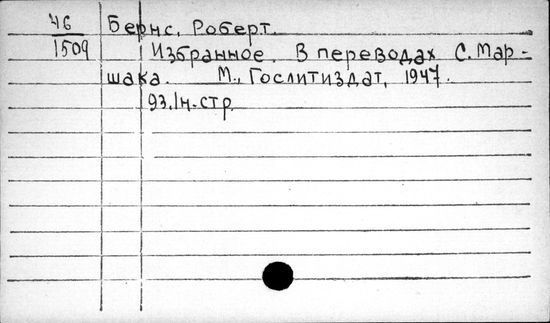 46 Бернс, Роберт.
1509 Избранное. В переводах С. Мар-
шака. М., Гослитиздат, 1947.
93.1н. стр.